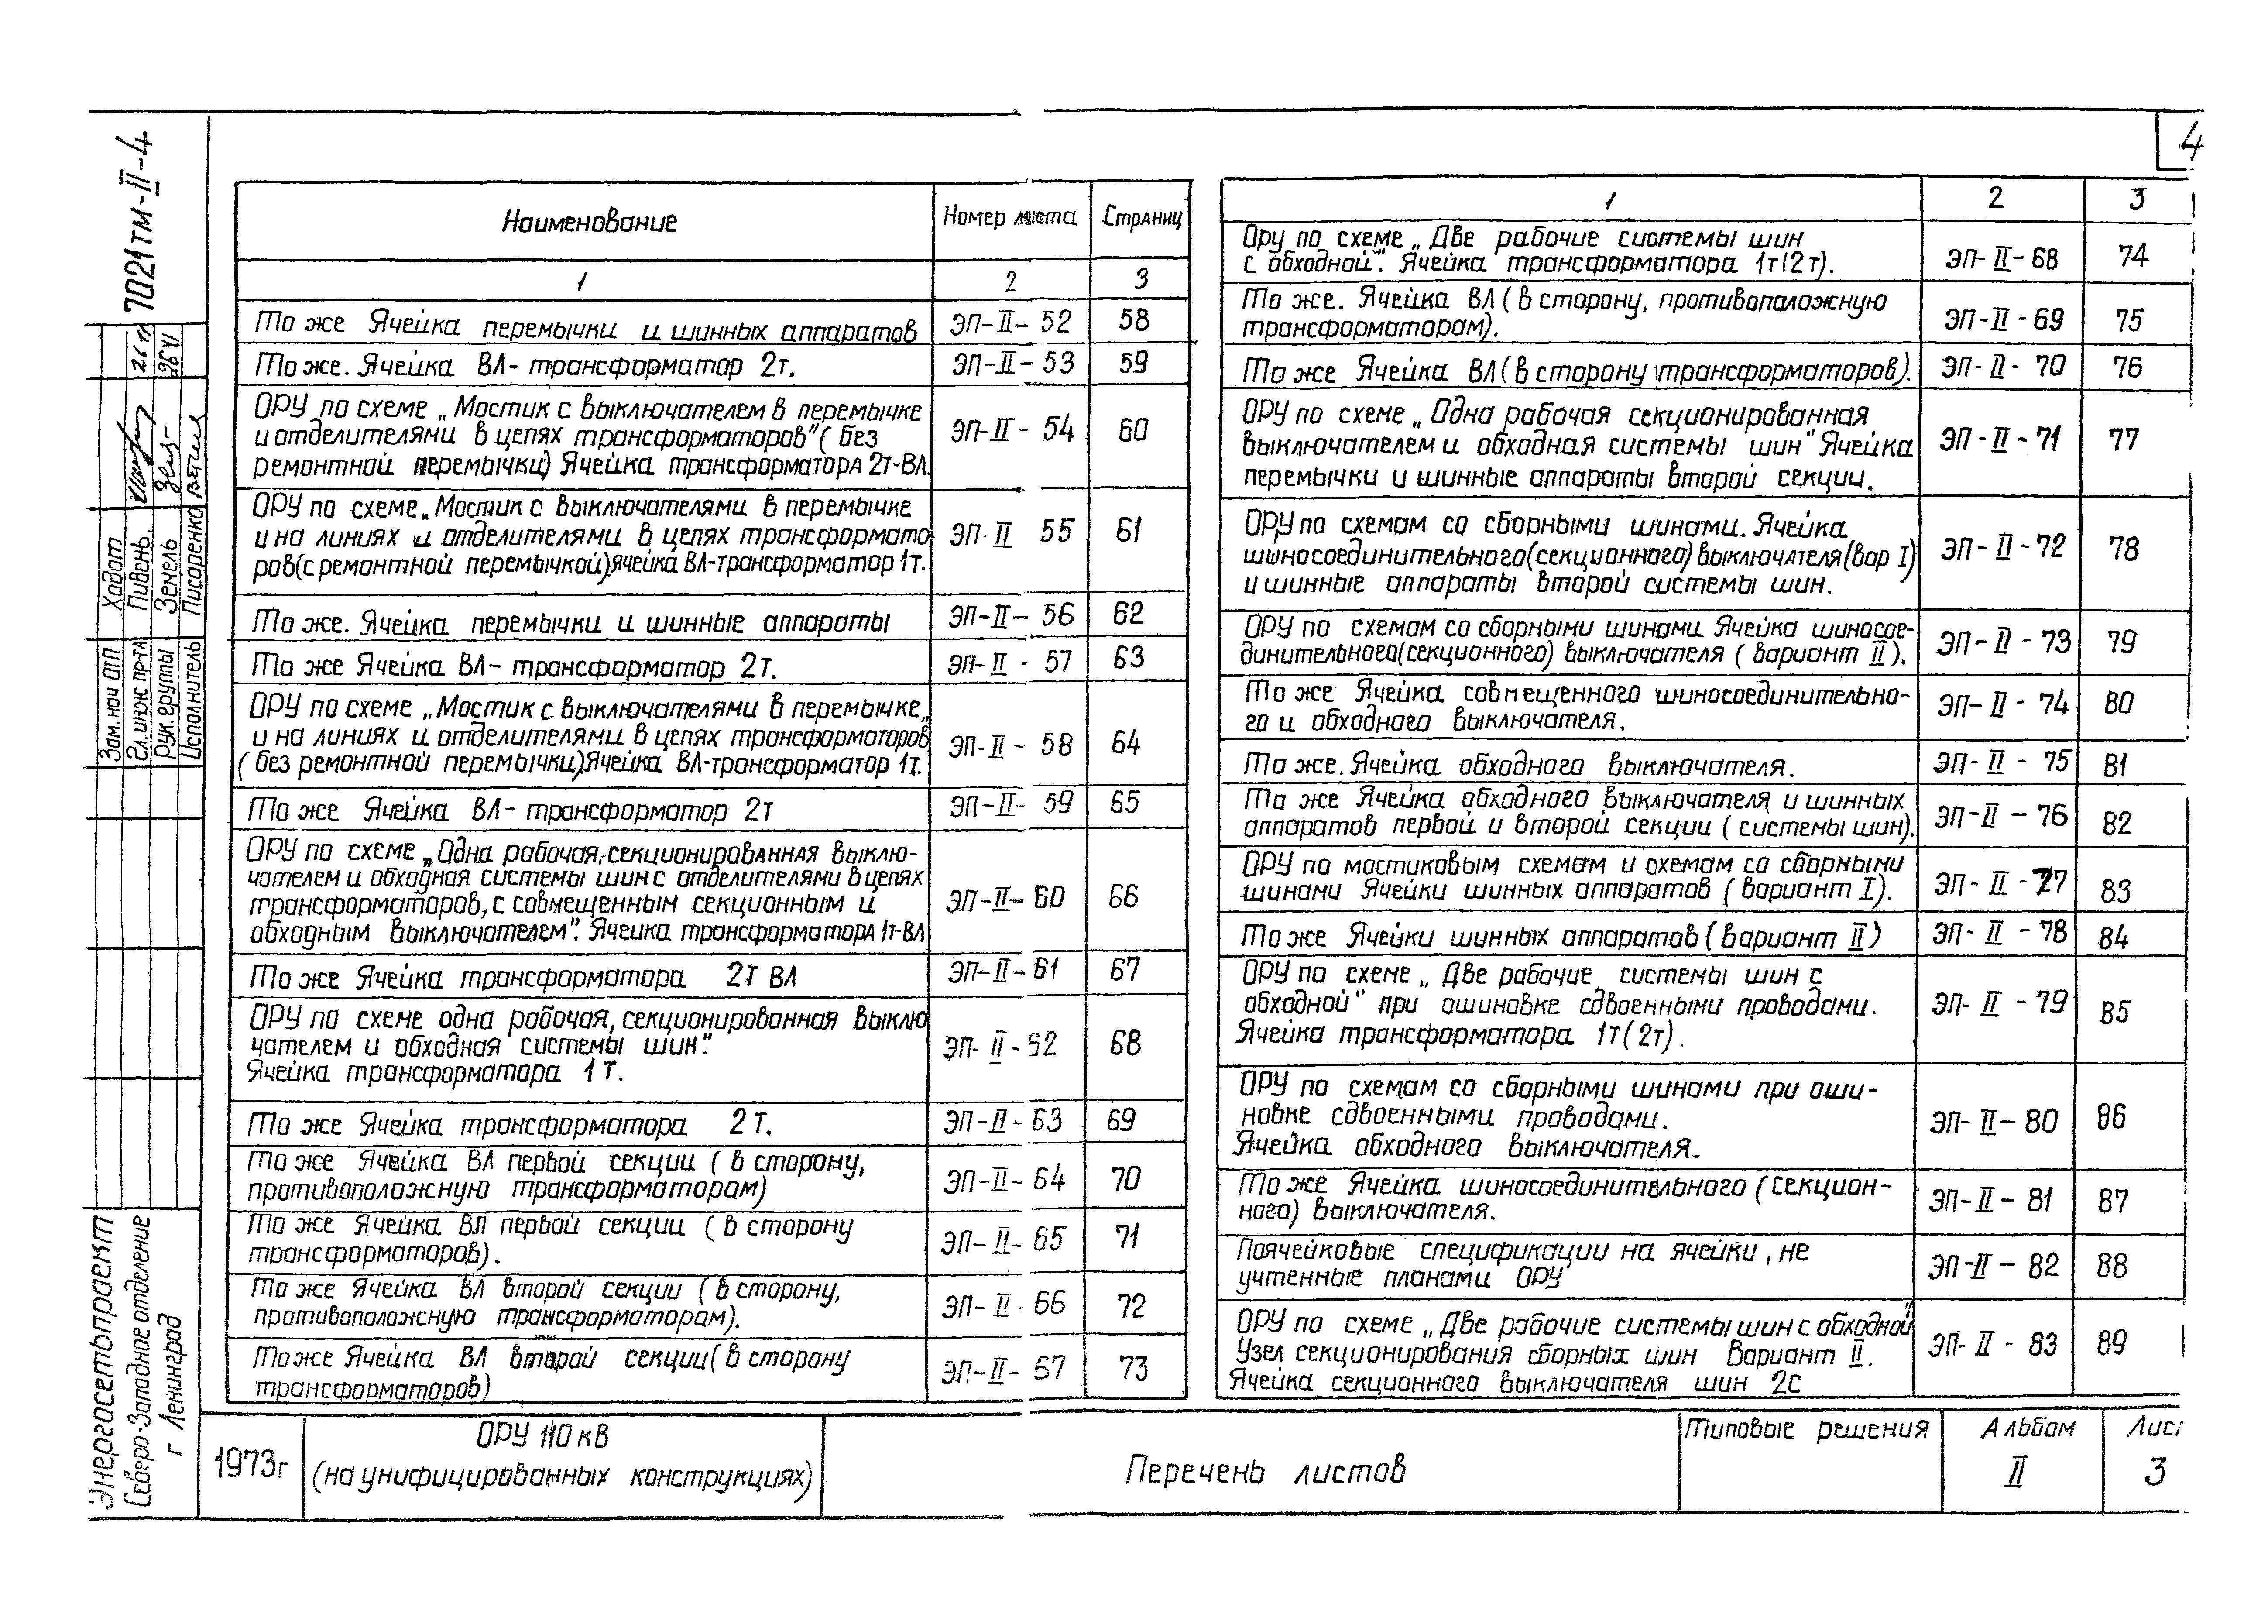 4
7021тм-II-4
Наименование Номер листа Страниц
1 2 3
То же Ячейка перемычки и шинных аппаратов ЭП-II-52 58
То же. Ячейка ВЛ-трансформатор 2т. ЭП-II-53 59
ОРУ по схеме „Мостик с выключателем в перемычке
и отделителями в цепях трансформаторов" (без
ремонтной перемычки) Ячейка трансформатора 2т-ВЛ. ЭП-II-54 60
ОРУ по схеме „Мостик с выключателями в перемычке
и на линиях и отделителями в цепях трансформато
ров (с ремонтной перемычкой). Ячейка ВЛ-трансформатор 1т. ЭП-II 55 61
То же. Ячейка перемычки и шинные аппараты ЭП-II-56 62
То же Ячейка ВЛ-трансформатор 2т. ЭП-II-57 63
ОРУ по схеме „Мостик с выключателями в перемычке„
и на линиях и отделителями в цепях трансформаторов
(без ремонтной перемычки). Ячейка ВЛ-трансформатор 1т. ЭП-II-58 64
То же Ячейка ВЛ-трансформатор 2т ЭП-II-59 65
ОРУ по схеме „Одна рабочая, секционированная выклю-
чателем и обходная системы шин с отделителями в цепях
трансформаторов, с совмещенным секционным и
обходным выключателем". Ячейка трансформатора 1т-ВЛ ЭП-II-60 66
То же Ячейка трансформатора 2т ВЛ ЭП-II-61 67
ОРУ по схеме одна рабочая, секционированная выклю
чателем и обходная системы шин".
Ячейка трансформатора 1т. ЭП-II-62 68
То же Ячейка трансформатора 2т. ЭП-II-63 69
То же Ячейка ВЛ первой секции (в сторону,
противоположную трансформаторам) ЭП-II-64 70
То же Ячейка ВЛ первой секции (в сторону
трансформаторов). ЭП-II-65 71
То же Ячейка ВЛ второй секции (в сторону,
противоположную трансформаторам). ЭП-II-66 72
То же Ячейка ВЛ второй секции (в сторону
трансформаторов) ЭП-II-67 73
1 2 3
ОРУ по схеме „Две рабочие системы шин
с обходной". Ячейка трансформатора 1т(2т). ЭП-II-68 74
То же. Ячейка ВЛ (в сторону, противоположную
трансформаторам). ЭП-II-69 75
То же Ячейка ВЛ (в сторону трансформаторов). ЭП-II-70 76
ОРУ по схеме „Одна рабочая секционированная
выключателем и обходная системы шин" Ячейка
перемычки и шинные аппараты второй секции. ЭП-II-71 77
ОРУ по схемам со сборными шинами. Ячейка
шиносоединительного (секционного) выключателя (вар I)
и шинные аппараты второй системы шин. ЭП-II-72 78
ОРУ по схемам со сборными шинами. Ячейка шиносое-
динительного (секционного) выключателя (вариант II). ЭП-II-73 79
То же Ячейка совмещенного шиносоединительно-
го и обходного выключателя. ЭП-II-74 80
То же. Ячейка обходного выключателя. ЭП-II-75 81
То же Ячейка обходного выключателя и шинных
аппаратов первой и второй секции (системы шин). ЭП-II-76 82
ОРУ по мостиковым схемам и схемам со сборными
шинами Ячейки шинных аппаратов (вариант I). ЭП-II-77 83
То же Ячейки шинных аппаратов (вариант II) ЭП-II-78 84
ОРУ по схеме „Две рабочие системы шин с
обходной" при ошиновке сдвоенными проводами.
Ячейка трансформатора 1т(2т). ЭП-II-79 85
ОРУ по схемам со сборными шинами при оши-
новке сдвоенными проводами.
Ячейка обходного выключателя. ЭП-II-80 86
То же Ячейка шиносоединительного (секцион-
ного) выключателя. ЭП-II-81 87
Поячейковые спецификации на ячейки, не
учтенные планами ОРУ ЭП-II-82 88
ОРУ по схеме „Две рабочие системы шин с обходной"
Узел секционирования сборных шин Вариант II.
Ячейка секционного выключателя шин 2с ЭП-II-83 89
Зам. нач ОТП Ходот
Гл. инж. пр-та Пивень 26 VI
Рук. группы Земель 26 VI
Исполнитель Писаренко
Энергосетьпроект
Северо-Западное отделение
г Ленинград
1973г
ОРУ 110 кВ
(на унифицированных конструкциях)
Перечень листов
Типовые решения
Альбом
II
Лист
3